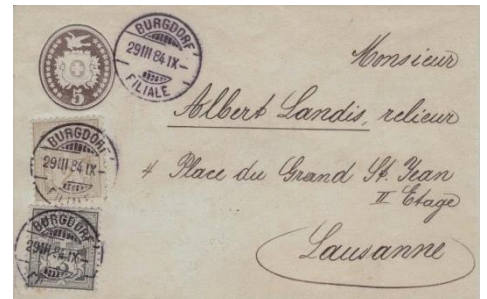 5
BURGDORF
29 III 84 IX-
FILIALE
BURGDORF
29 III 84 IX-
FILIALE
BURGDORF
29 III 84 IX-
Monsieur
Albert Landis, relieur
4 Place du Grand St. Jean
II Etage
Lausanne